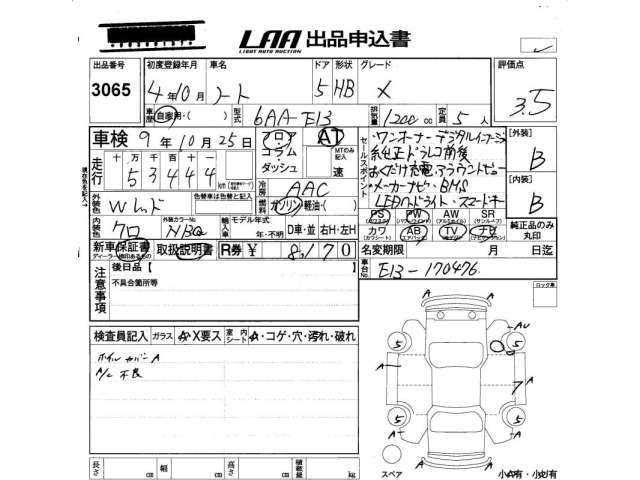 LAA 出品申込書
LIGHT AUTO AUCTION
出品番号 初度登録年月 車名 ドア 形状 グレード 評価点
3065 4年10月 ノート 5 HB X 3.5
車歴 自家用・( ) 型式 6AA-E13 排気量 1200cc 定員 5人
車検 9年10月25日 フロア コラム ダッシュ AT MTのみ記入 速
走行 十万千百十 53444 km
セールスポイント
ワンオーナー デジタルインナーミラー
純正ドラレコ前後
おくだけ充電、アラウンドビュー
メーカーナビ・BMS
LEDヘッドライト・スマートキー
[外装] B
[内装] B
冷房 AAC
外装色 Wレッド 色替車は色替と記入 燃料 ガソリン 軽油・( )
PS PW AW SR
カワ AB TV ナビ
純正品のみ丸印
内装色 クロ 外装カラーNo. NBQ 輸入車 モデル年式 年・不明 D車・並 右H・左H
新車保証書 取扱説明書 R券 ¥ 8,170 名変期限 月 日迄
ディーラー検印あるもの
注意事項 後日品[ ] 車台No. E13-170476
不具合箇所等
ロック車
検査員記入 ガラス A・X要ス 室内シート A・コゲ・穴・汚れ・破れ
ホイルカバーA
A/C 不良
A
AU
5 5
A A
7
5 5
A A
A
長さ cm 幅 cm 高さ cm 積載量 kg
スペア 小A有・小U有